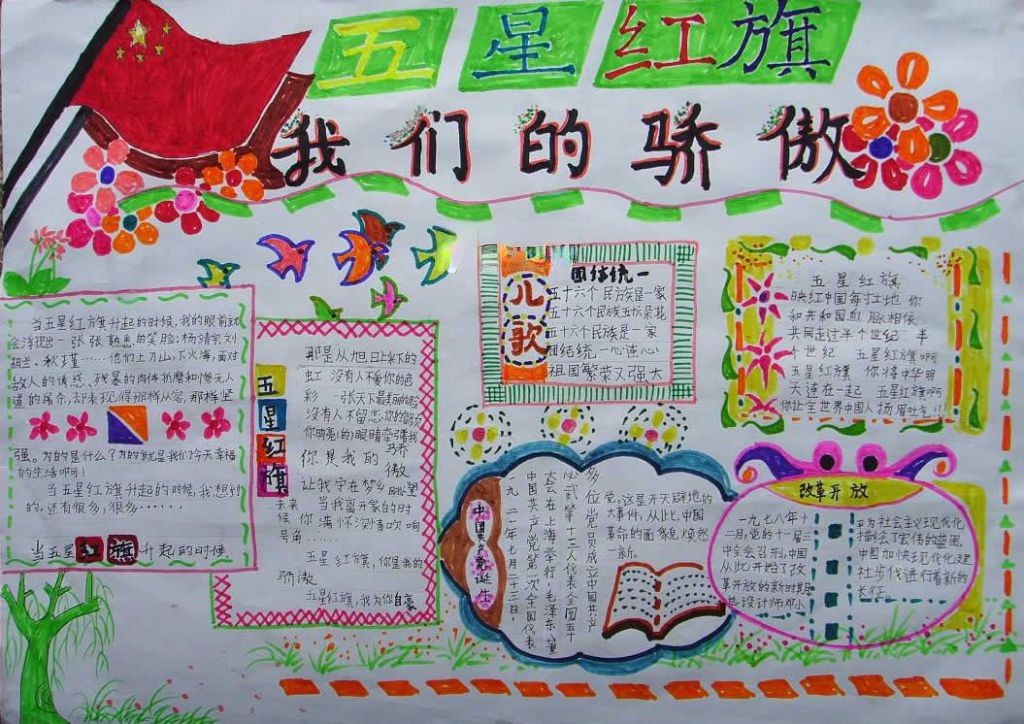 五星红旗
我们的骄傲
当五星红旗升起的时候,我的眼前就
会浮现出一张张熟悉的笑脸:杨靖宇刘
胡兰、秋瑾……他们上刀山,下火海,面对
敌人的诱惑,残暴的肉体折磨和惨无人
道的屠杀,却表现得那样从容,那样坚
强。为的是什么?为的就是我们今天幸福
的生活啊!
当五星红旗升起的时候,我想到
的,还有很多,很多……
当五星红旗升起的时候
五星红旗
那是从旭日上采下的
虹 没有人不爱你的色
彩 一张天下最美的脸
没有人不留恋你的容颜
你明亮的眼睛牵引我
你是我的骄傲
让我守在梦乡眺望
未来 当我离开家的时
候 你满怀深情吹响
号角……
五星红旗,你是我的
骄傲
五星红旗,我为你自豪
儿歌
团结统一
五十六个民族是一家
五十六个民族五十六朵花
五十六个民族是一家
团结统一心连心
祖国繁荣又强大
五星红旗
映红中国每寸土地 你
和共和国血脉相依
共同走过半个世纪 半
个世纪 五星红旗啊
五星红旗 你将中华明
天连在一起 五星红旗啊
你让全世界中国人扬眉吐气!
中国共产党诞生
一九二一年七月二十三日,
中国共产党第一次全国代表
大会在上海举行,毛泽东、董
必武等十三人代表全国五十
多位党员成立中国共产
党。这是开天辟地的
大事件,从此,中国
革命的面貌焕然
一新。
改革开放
一九七八年十
二月,党的十一届三
中全会召开,中国
从此开始了改
革开放的新时期
总设计师邓小
平为社会主义现代化
描绘了宏伟的蓝图,
中国加快现代化建
设步伐进行着新的
长征。